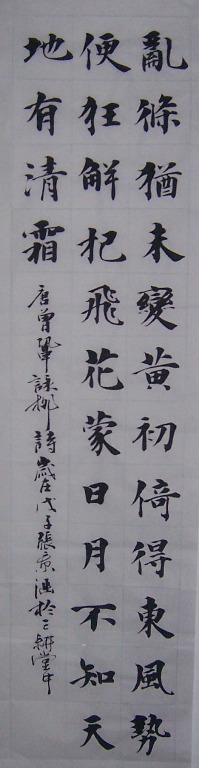 亂條猶未變黃初倚得東風勢
便狂解把飛花蒙日月不知天
地有清霜
唐曾鞏詠柳詩歲在戊子張於三耕堂中